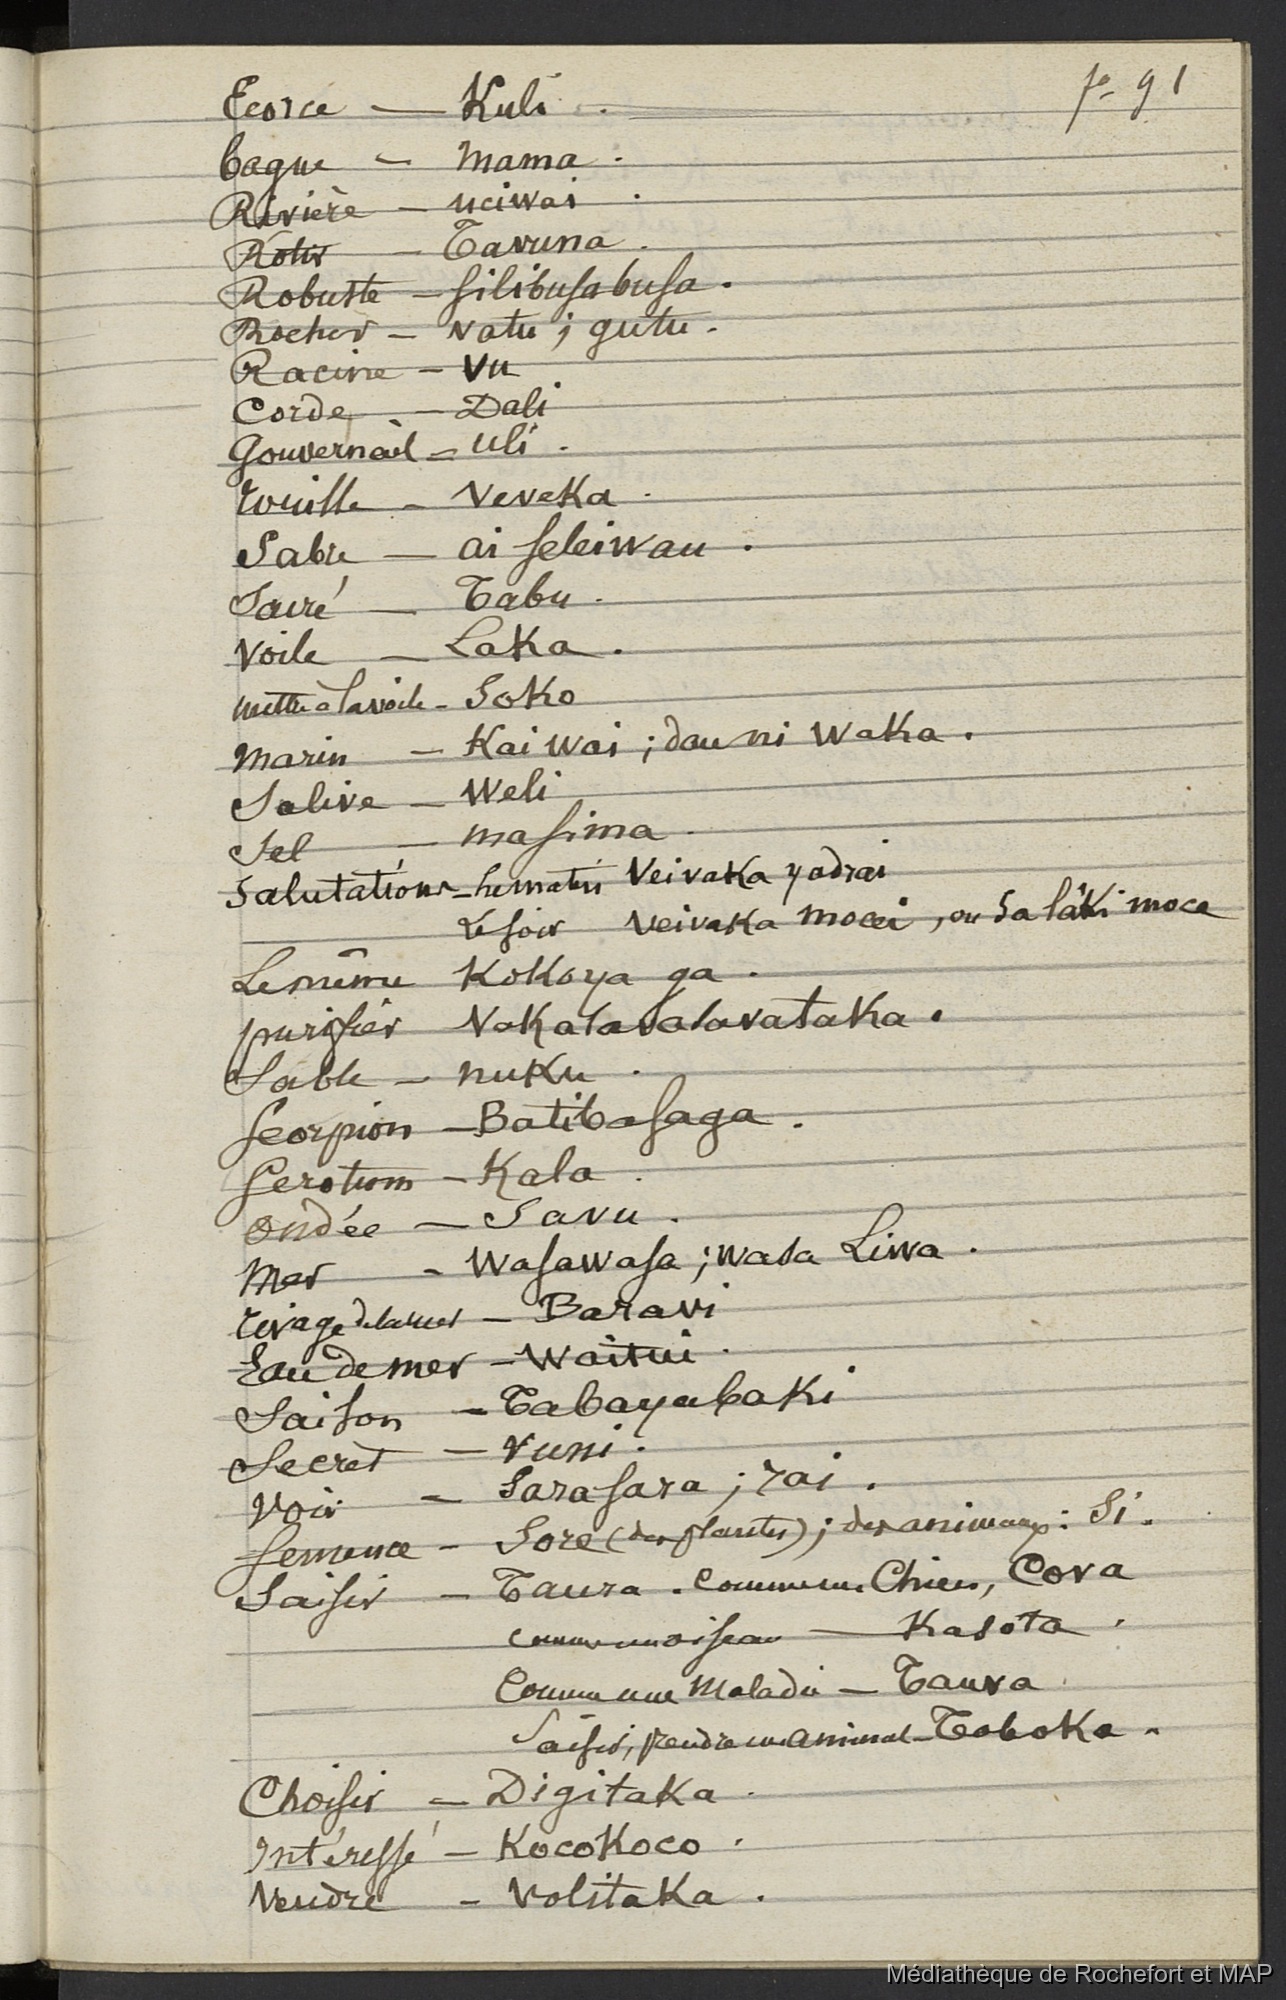 p. 91
Ecorce — Kuli.
bague — Mama.
Rivière — uciwai.
Rotir — Tavuna.
Robuste — silibusabusa.
Rocher — vatu ; gutu.
Racine — Vu
Corde — Dali
Gouvernail — uli.
rouille — Veveka.
Sabre — ai seleiwau.
Sacré — Tabu.
Voile — Laka.
mettre à la voile — Soko
marin — Kai wai ; dau ni waka.
Salive — Weli
Sel — masima.
Salutations — le matin Veivaka yadrai
Le soir Veivaka mocei, ou Sa láki moce
Le même Kokoya ga.
purifier Vakasavasavataka.
Sable — nuku.
Scorpion — Batibasaga.
Scrotum — Kala.
ondée — Savu.
Mer — Wasawasa ; wasa Liwa.
rivage de la mer — Baravi
Eau de mer — Waitui.
Saison — Tabayabaki
Secret — Vuni.
Voir — Sarasara ; rai.
Semence — Sore (des plantes) ; des animaux : Si.
Saisir — Taura. comme un Chien, Cova
comme un oiseau — Kasota.
Comme une Maladie — Tauva
Saisir, prendre un animal — Toboka.
Choisir — Digitaka.
Intéressé — Kocokoco.
Vendre — Volitaka.
Médiathèque de Rochefort et MAP